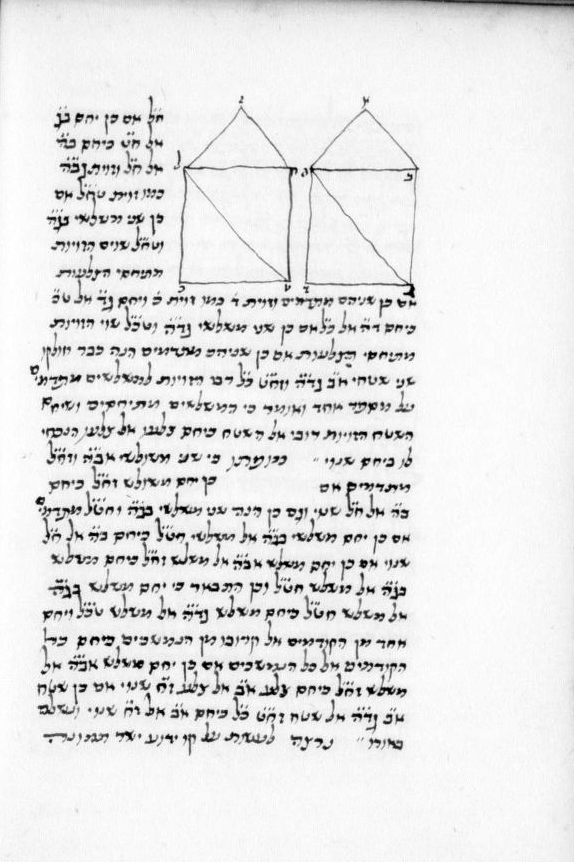 חל אם כן יחס בג
אל חט כיחס בה
אל חל וזוית גבה
כמו זוית טחל אם
כן שני משלשי בגה
וטחל שוים הזויות
מתיחסי הצלעות
אם כן שניהם מתדמים וזוית ד כמו זוית כ ויחס גד אל טכ
כיחס דה אל כל אם כן שני משלשי גדה וטכל שוי הזויות
מתיחסי הצלעות אם כן שניהם מתדמים הנה כבר חולקו
שני שטחי אב גדה וזחט כל רבי הזויות למשלשים מתדמים
על מספר אחד ואומר כי המשלשים מתיחסים ושיחס
השטח הזויות רובי אל השטח כיחס צלעו אל צלעו הנכחי
לו כיחס שנוי כי שני משולשי אבה וזחל
מתדמים אם כן יחס משולש זחל כיחס
בה אל חל שנוי וגם כן הנה שני משלשי בגה וחטל מתדמים
אם כן יחס משלשי בגה אל משלשי חטל כיחס בה אל חל
שנוי אם כן יחס משלש אבה אל משלש זחל כיחס משלש
בגה אל משלש חטל וכן התבאר כי יחס משלש בגה
אל משלש חטל כיחס משלש גדה אל משלש טכל ויחס
אחד מן הקודמים אל קרובו מן הנמשכים כיחס כל
הקודמים אל כל הנמשכים אם כן יחס משלש אבה אל
משלש זחל כיחס צלע אב אל צלע זח שנוי אם כן שטח
אב גדה אל שטח זחט כל כיחס אב אל זח שנוי
באורו נרצה לעשות על קו ידוע